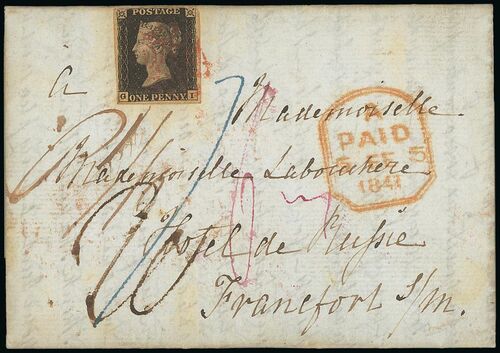 POSTAGE
G I
ONE PENNY
a
Mademoiselle
Mademoiselle Labouchere
Hotel de Russie
Francfort s/m.
PAID
5
1841